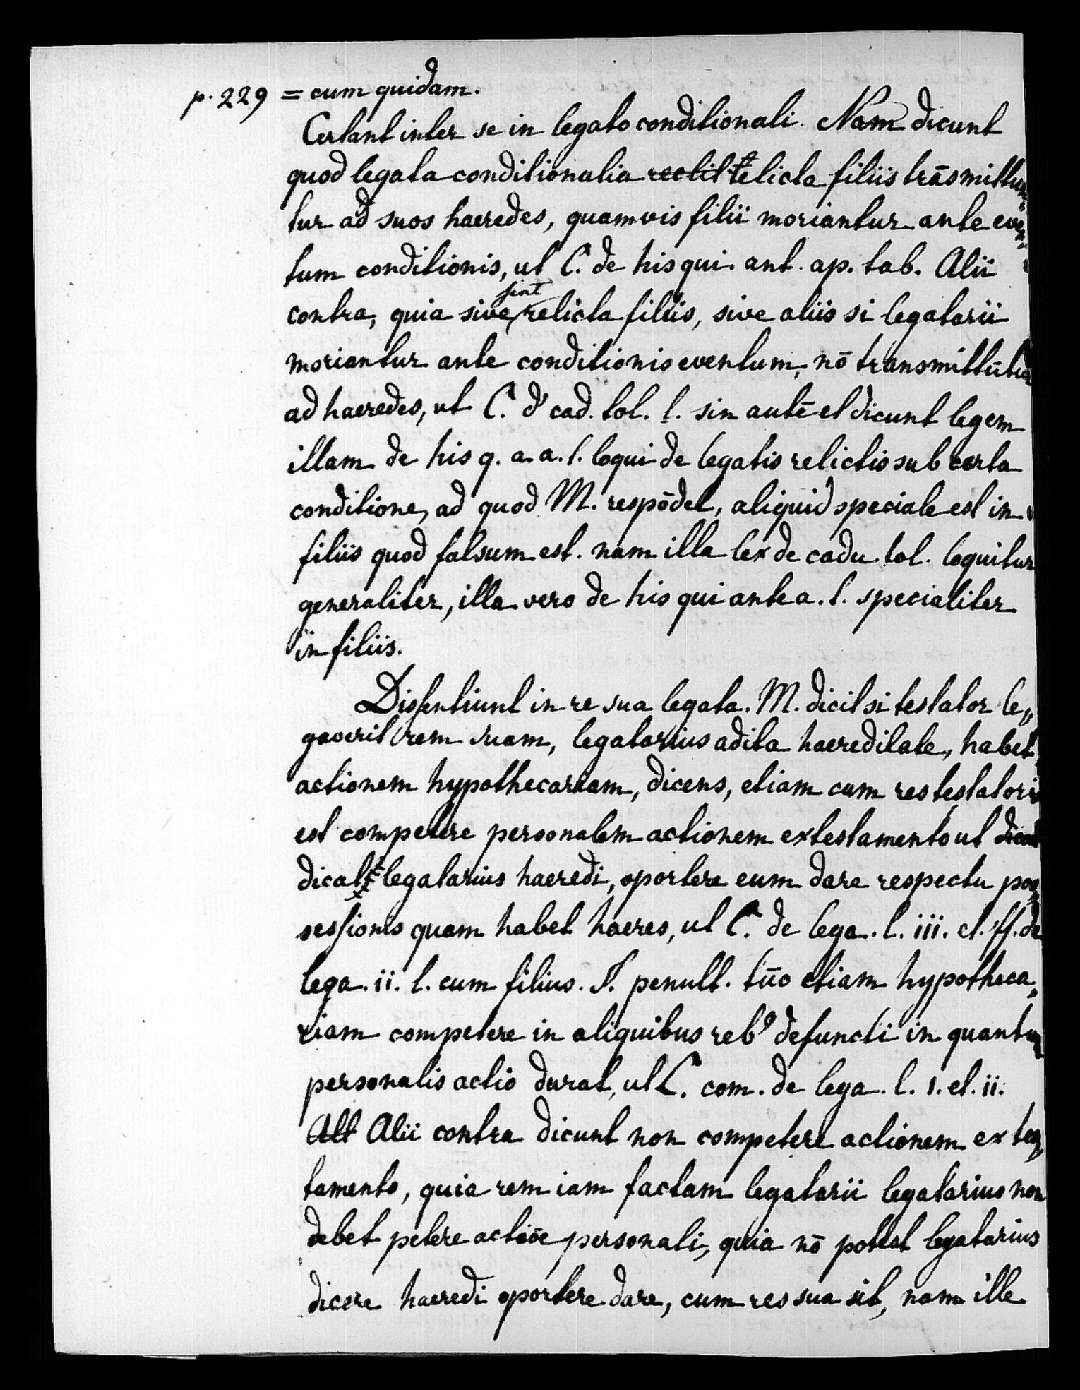 p. 229 = cum quidam.
Certant inter se in legato conditionali. Nam dicunt
quod legata conditionalia relicta filiis trāsmittun
tur ad suos haeredes, quamvis filii moriantur ante even
tum conditionis, ut C. de his qui. ant. ap. tab. Alii
contra, quia sive sint relicta filiis, sive aliis si legatarii
moriantur ante conditionis eventum, nō transmittūtur
ad haeredes, ut C. d' cad. tol. l. sin autē et dicunt legem
illam de his q. a. a. t. loqui de legatis relictis sub certa
conditione, ad quod M. respōdet, aliquid speciale est in
filiis quod falsum est. nam illa lex de cadu. tol. loquitur
generaliter, illa vero de his qui ante a. t. specialiter
in filiis.
Dissentiunt in re sua legata. M. dicit si testator le„
gaverit rem suam, legatarius adita haereditate, habet
actionem hypothecariam, dicens, etiam cum res testatoris
est competere personalem actionem ex testamento ut
dicat legatarius haeredi, oportere eum dare respectu pos
sessionis quam habet haeres, ut C. de lega. l. iii. et. ff. de
lega. ii. l. cum filius. §. penult. tūc etiam hypotheca„
riam competere in aliquibus reb9 defuncti in quantum
personalis actio durat, ut C. com. de lega. l. 1. et. ii.
Alt Alii contra dicunt non competere actionem ex tes„
tamento, quia rem iam factam legatarii legatarius non
debet petere actiōe personali, quia nō potest legatarius
dicere haeredi oportere dare, cum res sua sit, nam ille